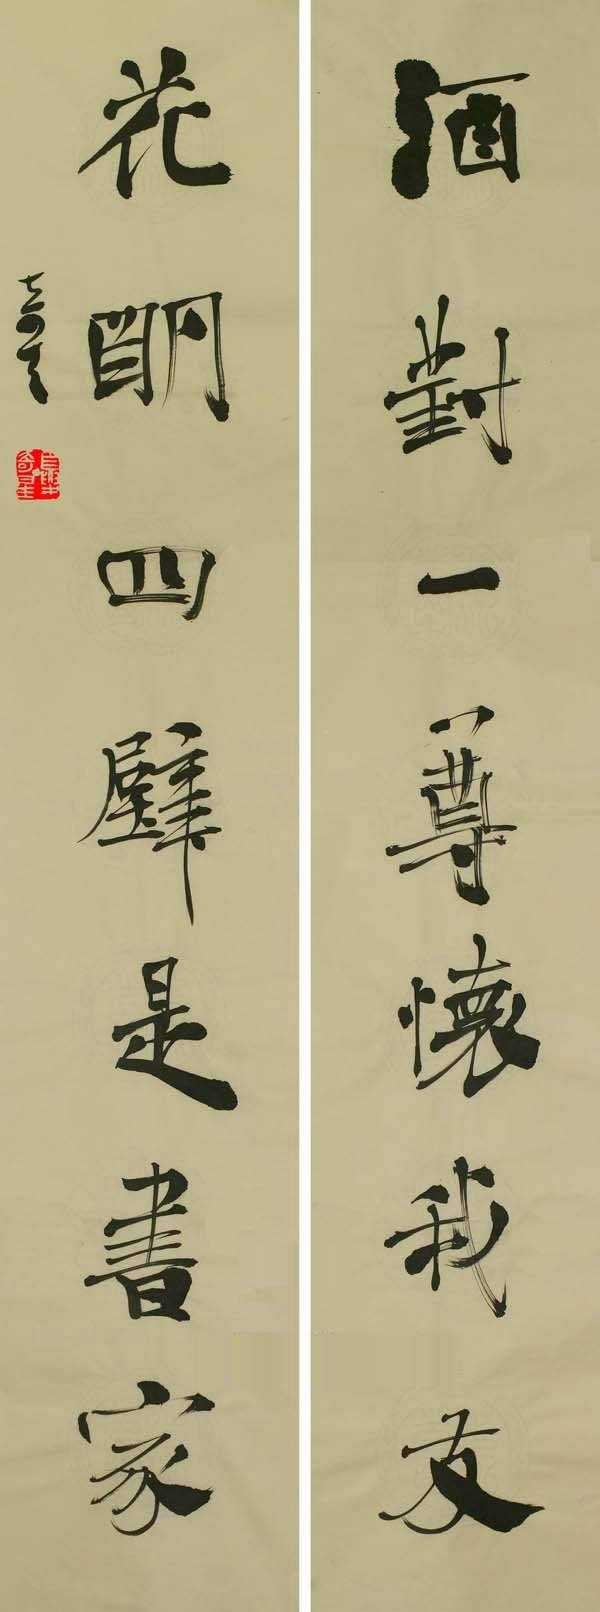 酒對一尊懷我友
花明四壁是書家